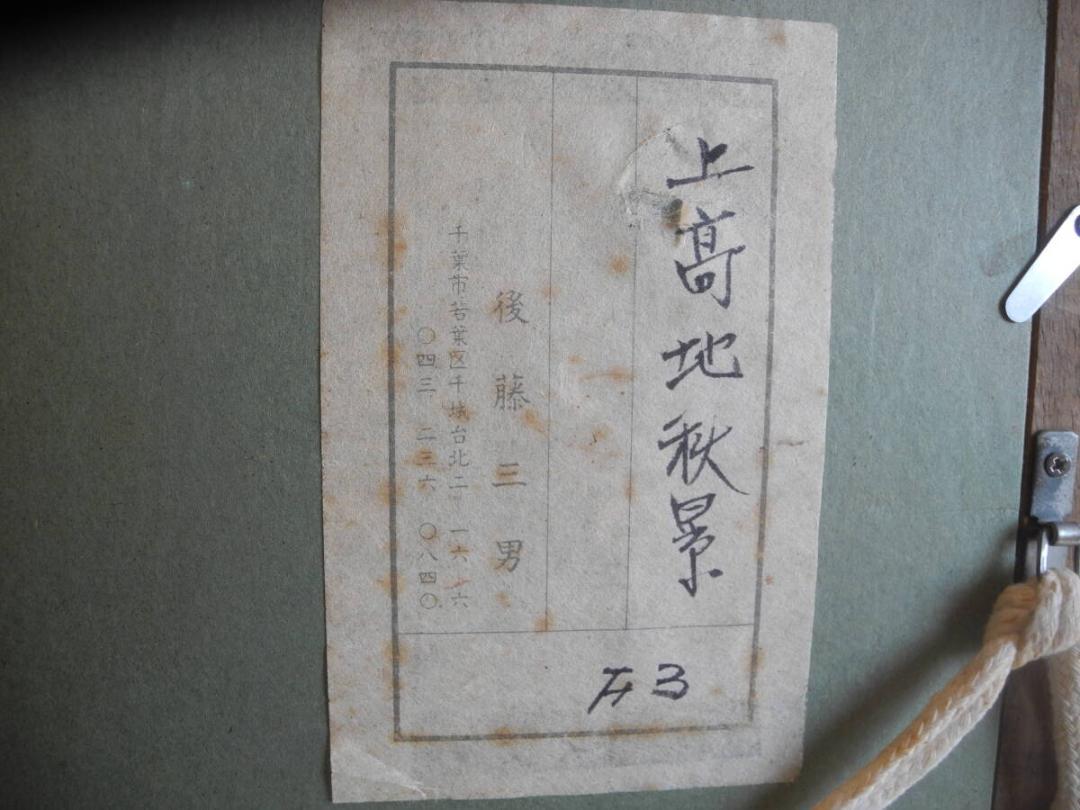 上髙地秋景
後藤三男
千葉市若葉区千城台北二 一六 六
〇四三 二三六 〇八四〇